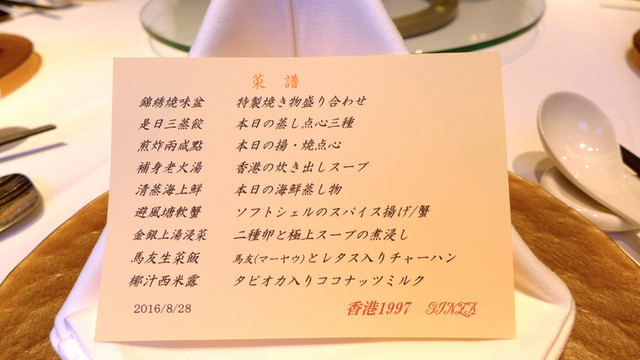 菜譜
錦綉焼味盆 特製焼き物盛り合わせ
是日三蒸餃 本日の蒸し点心三種
煎炸両咸點 本日の揚・焼点心
補身老火湯 香港の炊き出しスープ
清蒸海上鮮 本日の海鮮蒸し物
避風塘軟蟹 ソフトシェルのスパイス揚げ/蟹
金銀上湯浸菜 二種卵と極上スープの煮浸し
馬友生菜飯 馬友(マーヤウ)とレタス入りチャーハン
椰汁西米露 タピオカ入りココナッツミルク
2016/8/28 香港1997 GINZA